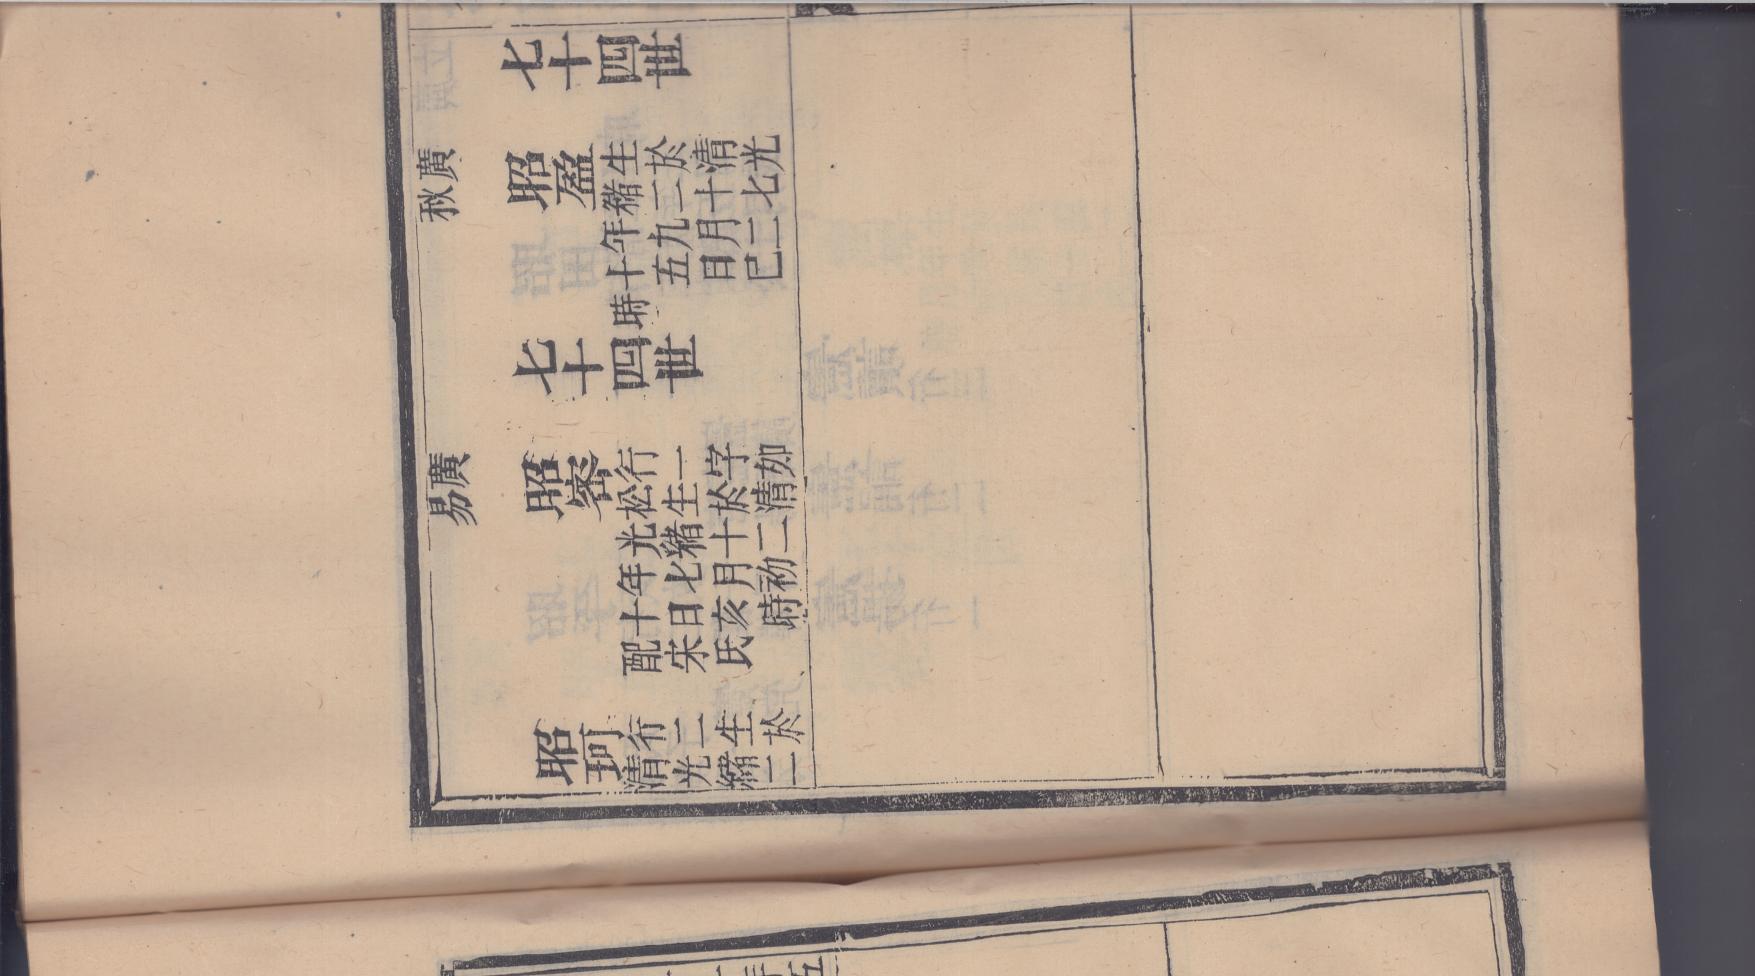 七十四世
廣秋
昭盈
生於清光
緒二十七
年九月二
十五日巳
時
七十四世
廣易
昭
行一字如
松生於清
光緒十二
年七月初
十日亥時
配宋氏
昭珂
行二生於
清光緒二